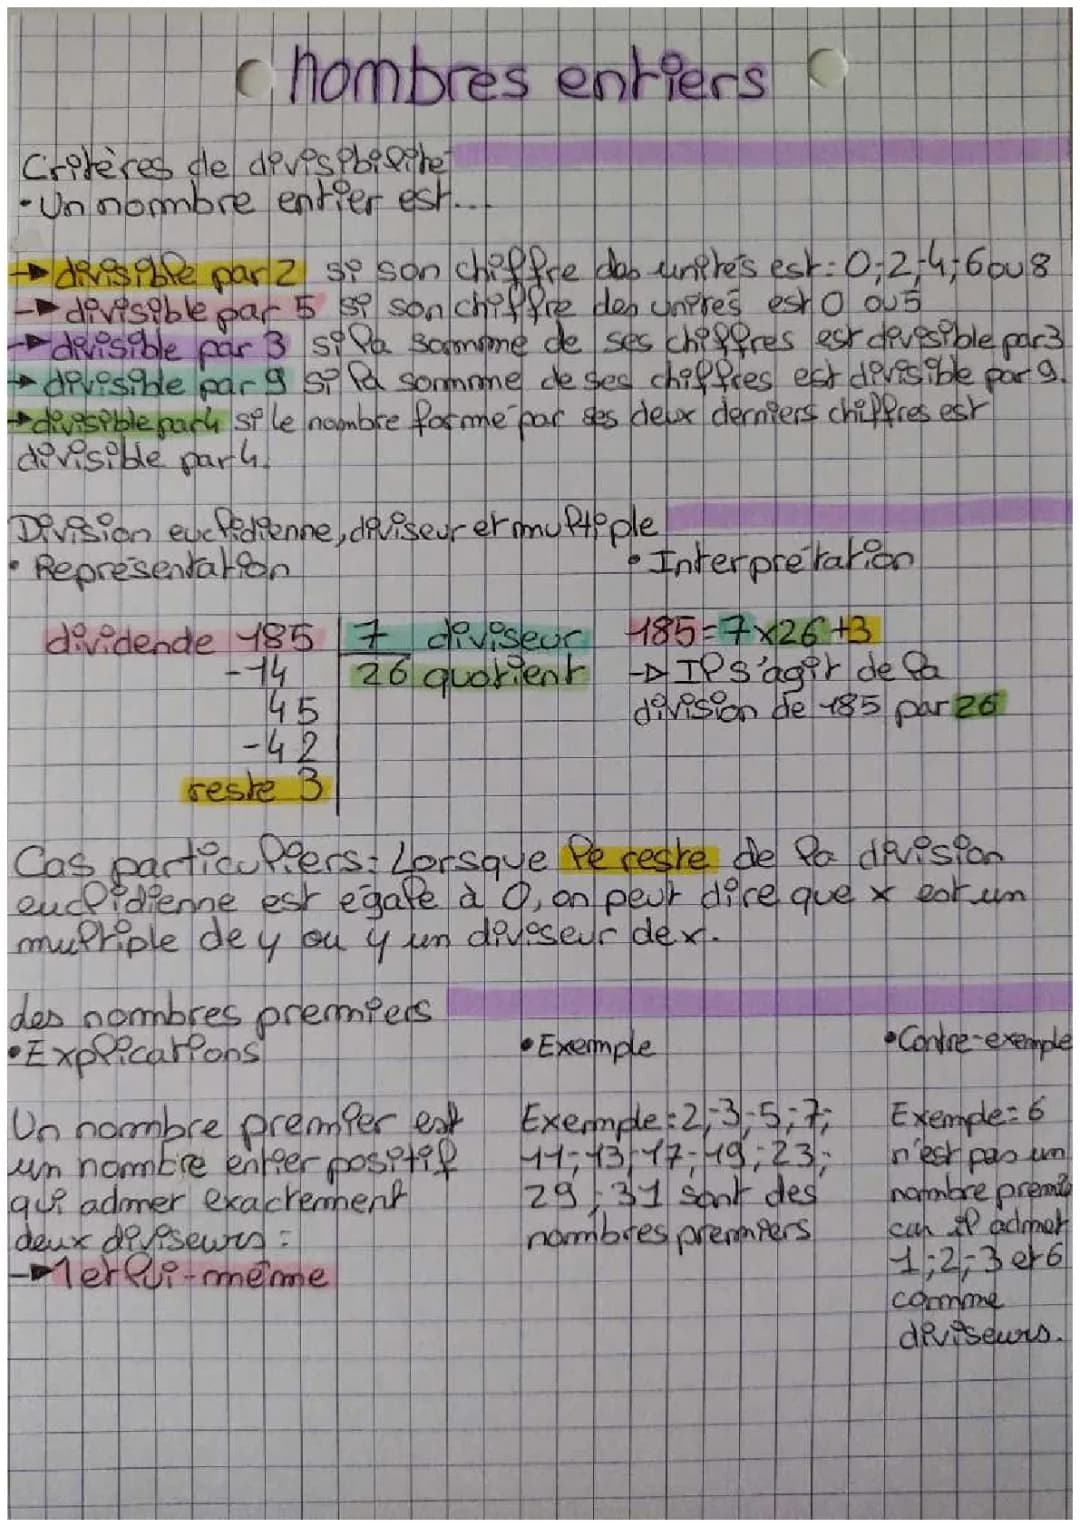 nombres entiers
Critères de divisibilité
• Un nombre entier est...
→ divisible par 2 si son chiffre des unités est : 0;2;4;6 ou 8
→ divisible par 5 si son chiffre des unités est 0 ou 5
→ divisible par 3 si la somme de ses chiffres est divisible par 3
→ divisible par 9 si la somme de ses chiffres est divisible par 9.
→ divisible par 4 si le nombre formé par ses deux derniers chiffres est
divisible par 4.
Division euclidienne, diviseur et multiple
• Représentation
• Interprétation
dividende 185 | 7 diviseur
-14 | 26 quotient
45
-42
reste 3
185 = 7x26+3
→ Il s'agit de la
division de 185 par 26
Cas particuliers : Lorsque le reste de la division
euclidienne est égale à 0, on peut dire que x est un
multiple de y ou y un diviseur de x.
des nombres premiers
• Explications
• Exemple
• Contre-exemple
Un nombre premier est
un nombre entier positif
qui admet exactement
deux diviseurs :
→ 1 et lui-même
Exemple : 2;3;5;7;
11;13;17;19;23;
29;31 sont des
nombres premiers
Exemple : 6
n'est pas un
nombre premie
car il admet
1;2;3 et 6
comme
diviseurs.